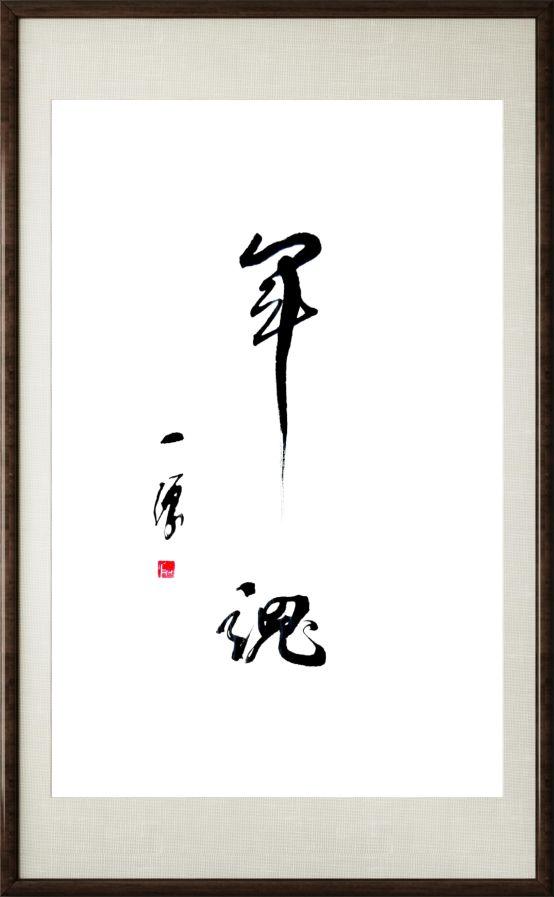 军魂
一源